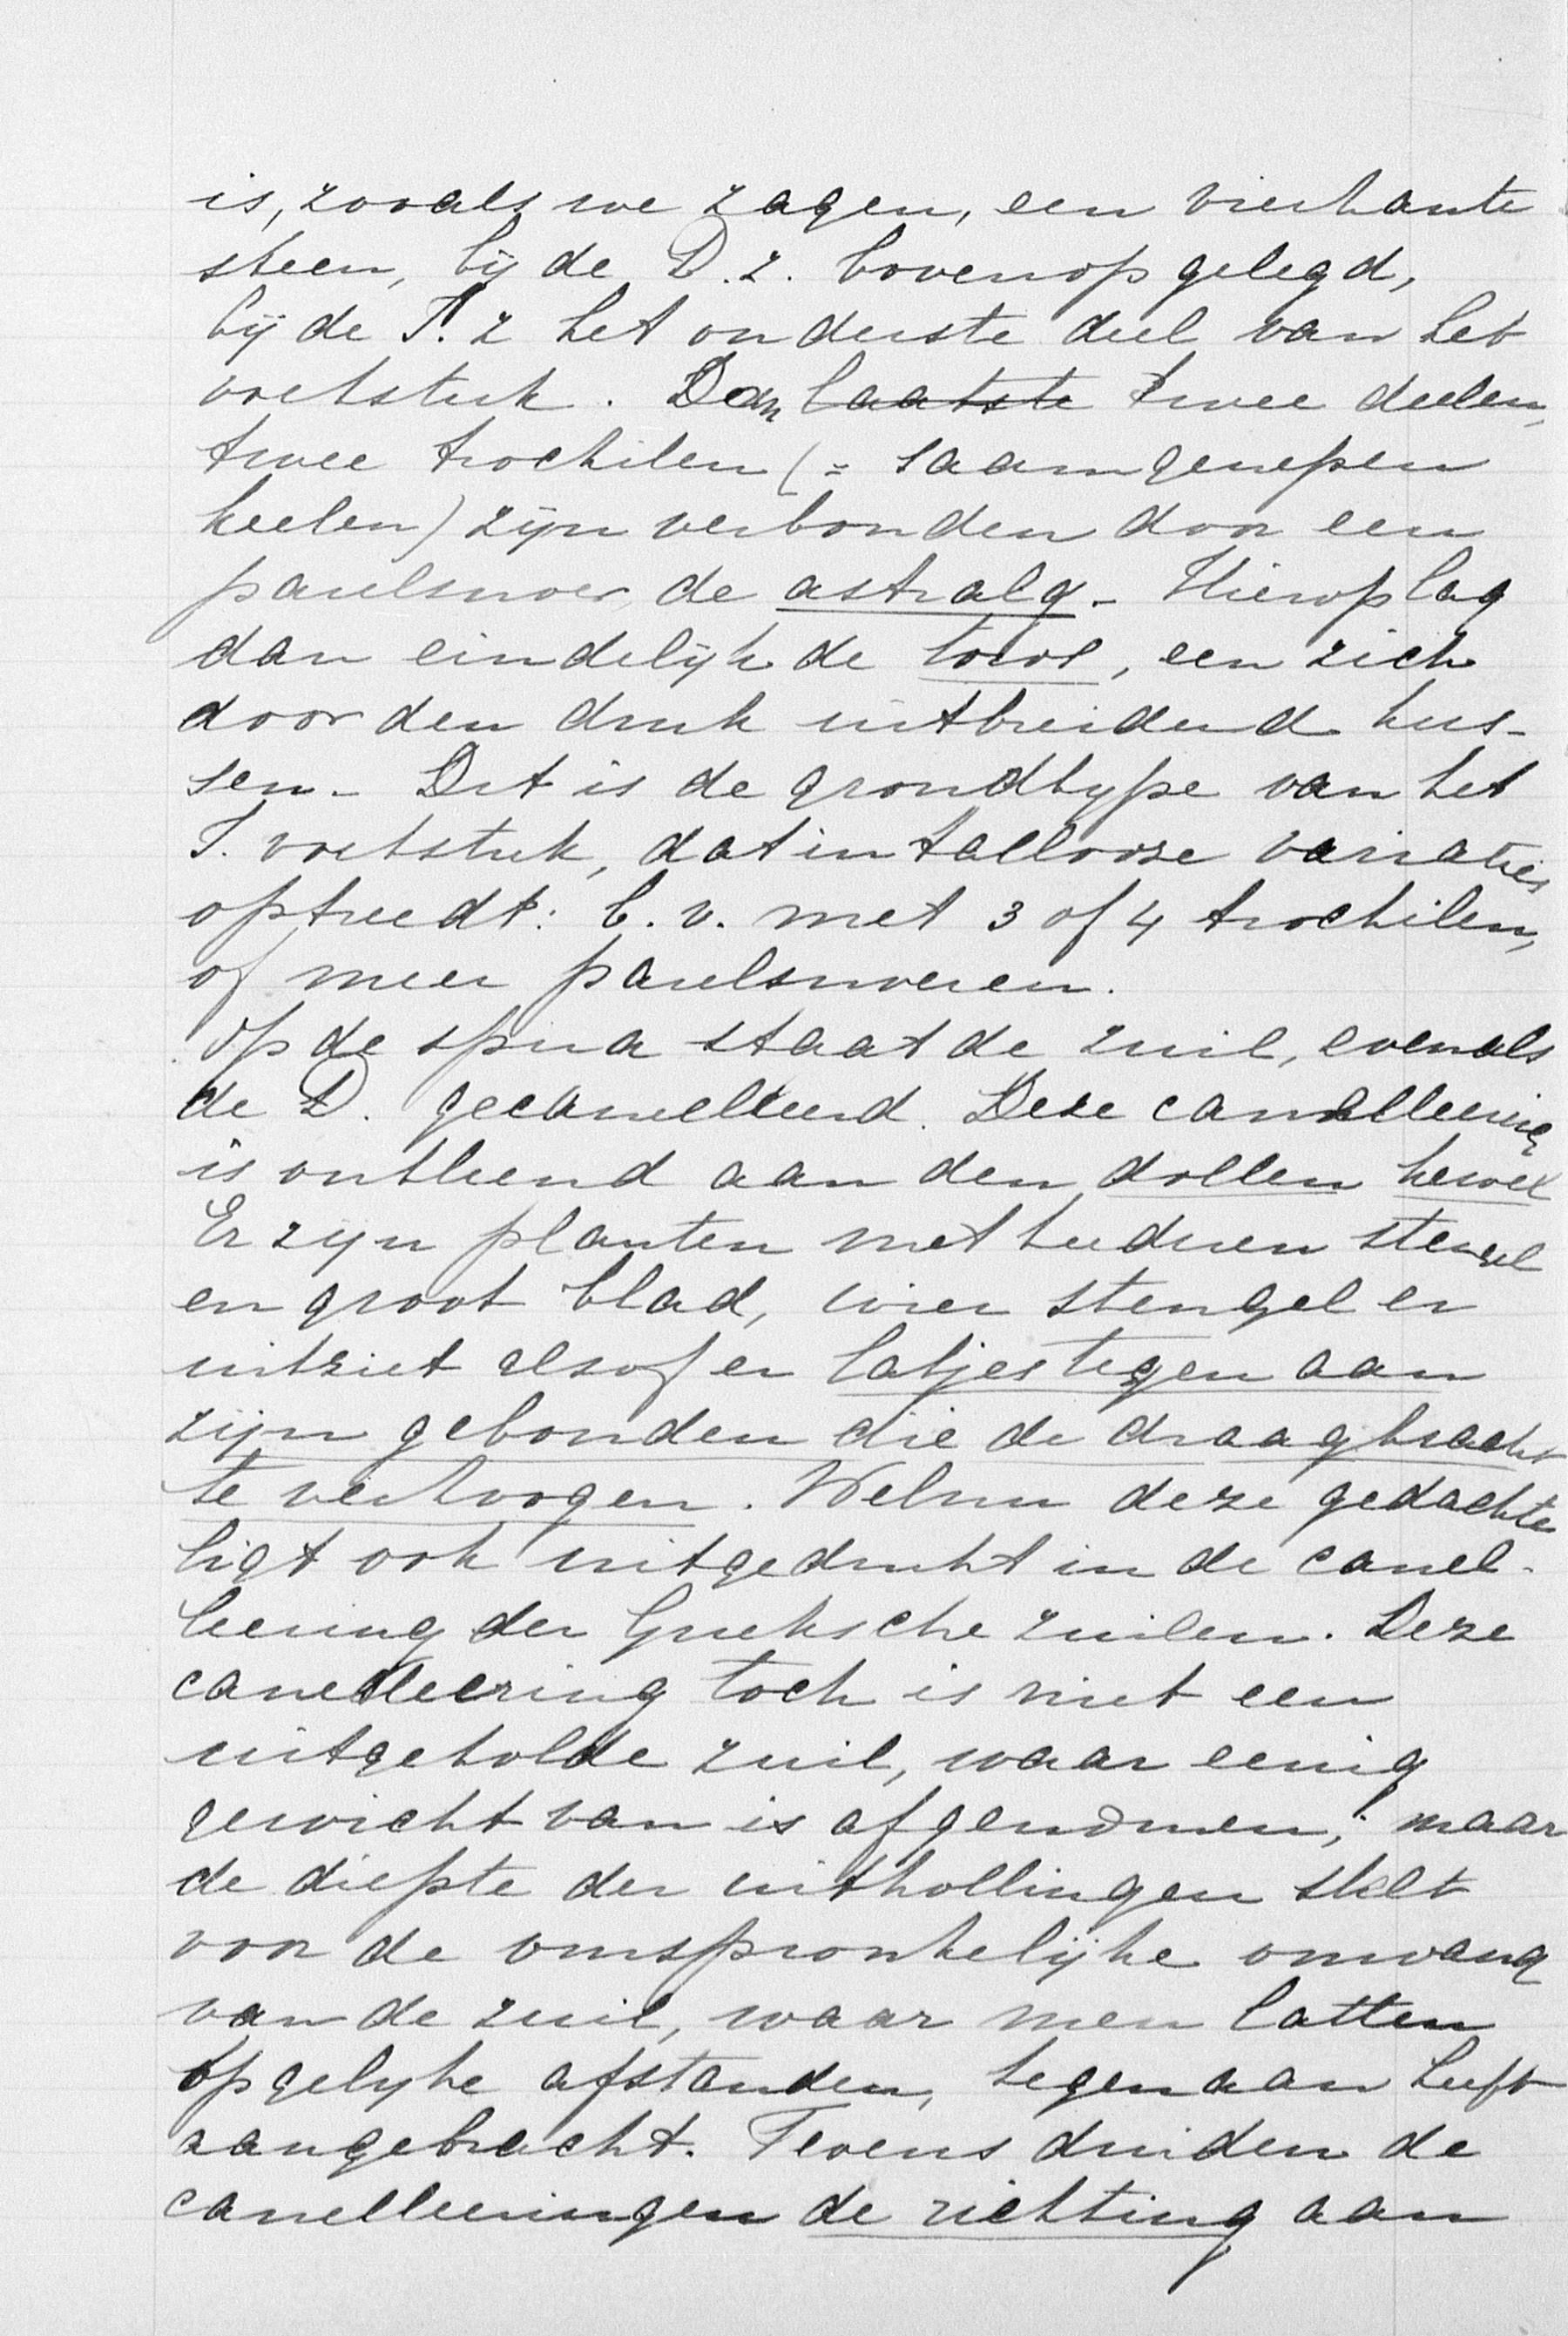 is, zooals we zagen, een vierkante
steen, bij de D.z. bovenop gelegd,
bij de I. z het onderste deel van het
voetstuk. Dan laatste twee deelen,
twee trochilen (= saamgenepen
keelen) zijn verbonden door een
parelsnoer de astralg. - Hierop lag
dan eindelijk de torol, een zich
door den druk uitbreidend kus-
sen. - Dit is de grondtype van het
I. voetstuk, dat in tallooze variaties
optreedt: b.v. met 3 of 4 trochilen,
of meer parelsnoeren.
Op de spira staat de zuil, evenals
de D. gecanelleerd. Deze canelleering
is ontleend aan den dollen kervel
Er zijn planten met stengel
en groot blad, wier stengel er
uitziet alsof er latjes tegen aan
zijn gebonden die de draagkracht
te verhoogen. Welnu deze gedachte
ligt ook uitgedrukt in de canel-
leering der Grieksche zuilen. Deze
canelleering toch is niet een
uitgeholde zuil, waar eenig
gewicht van is afgenomen; maar
de diepte der uithollingen stelt
voor de oorspronkelijke omvang
van de zuil, waar men latten
op gelijke afstanden, tegenaan heeft
aangebracht. Tevens duiden de
canelleeringen de richting aan